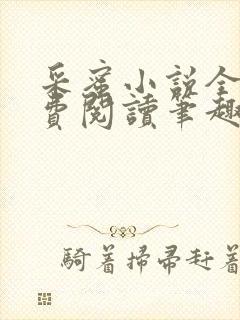 采蜜小說全
費閱讀筆趣
騎著掃帚赶着